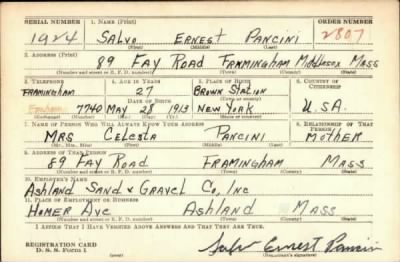 SERIAL NUMBER 1. NAME (Print) ORDER NUMBER
1924 SALVO ERNEST PANCINI 2807
(First) (Middle) (Last)
2. ADDRESS (Print)
89 FAY ROAD FRAMINGHAM MIDDLESEX MASS
(Number and street or R. F. D. number) (Town) (County) (State)
3. TELEPHONE 4. AGE IN YEARS 5. PLACE OF BIRTH 6. COUNTRY OF CITIZENSHIP
FRAMINGHAM 27 BROWN STATION
DATE OF BIRTH (Town or county)
7740 MAY 28 1913 NEW YORK U.S.A.
(Exchange) (Number) (Mo.) (Day) (Yr.) (State or country)
7. NAME OF PERSON WHO WILL ALWAYS KNOW YOUR ADDRESS 8. RELATIONSHIP OF THAT PERSON
MRS CELESTA PANCINI MOTHER
(Mr., Mrs., Miss) (First) (Middle) (Last)
9. ADDRESS OF THAT PERSON
89 FAY ROAD FRAMINGHAM MASS
(Number and street or R. F. D. number) (Town) (County) (State)
10. EMPLOYER'S NAME
ASHLAND SAND & GRAVEL CO, INC
11. PLACE OF EMPLOYMENT OR BUSINESS
HOMER AVE ASHLAND MASS
(Number and street or R. F. D. number) (Town) (County) (State)
I AFFIRM THAT I HAVE VERIFIED ABOVE ANSWERS AND THAT THEY ARE TRUE.
REGISTRATION CARD
D. S. S. Form 1 Salvo Ernest Pancini
(Registrant's signature)